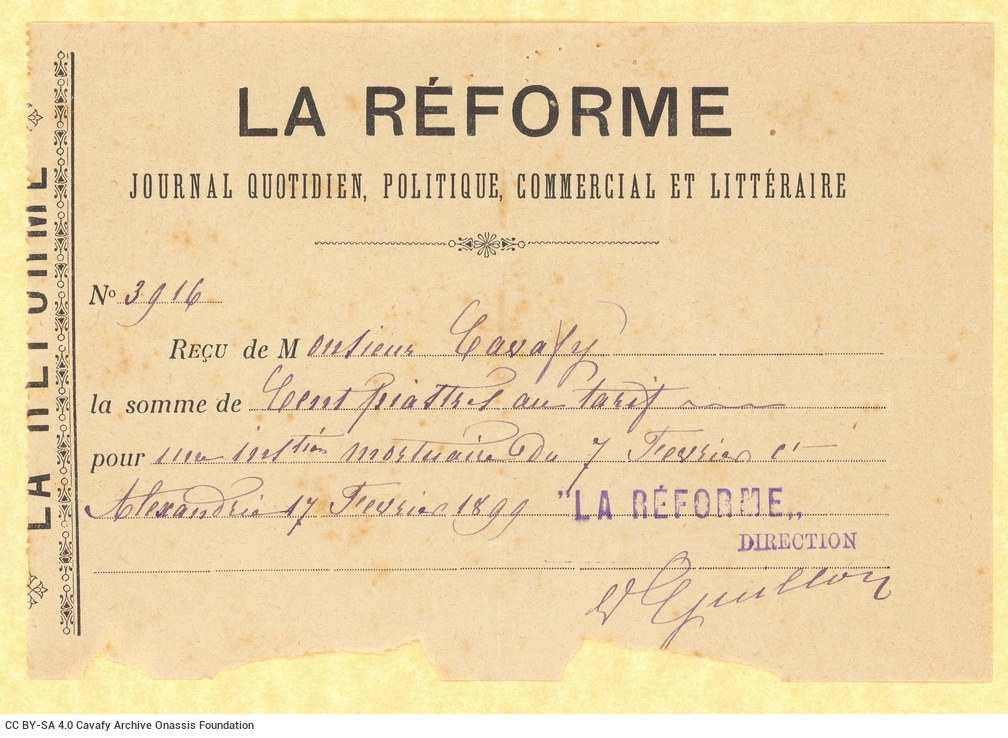 LA RÉFORME
JOURNAL QUOTIDIEN, POLITIQUE, COMMERCIAL ET LITTÉRAIRE
LA RÉFORME
No 3916
REÇU de Monsieur Cavafy
la somme de Cent piastres au tarif
pour une instion mortuaire du 7 Fevrier ct
Alexandrie 17 Fevrier 1899 "LA RÉFORME„
DIRECTION
CC BY-SA 4.0 Cavafy Archive Onassis Foundation